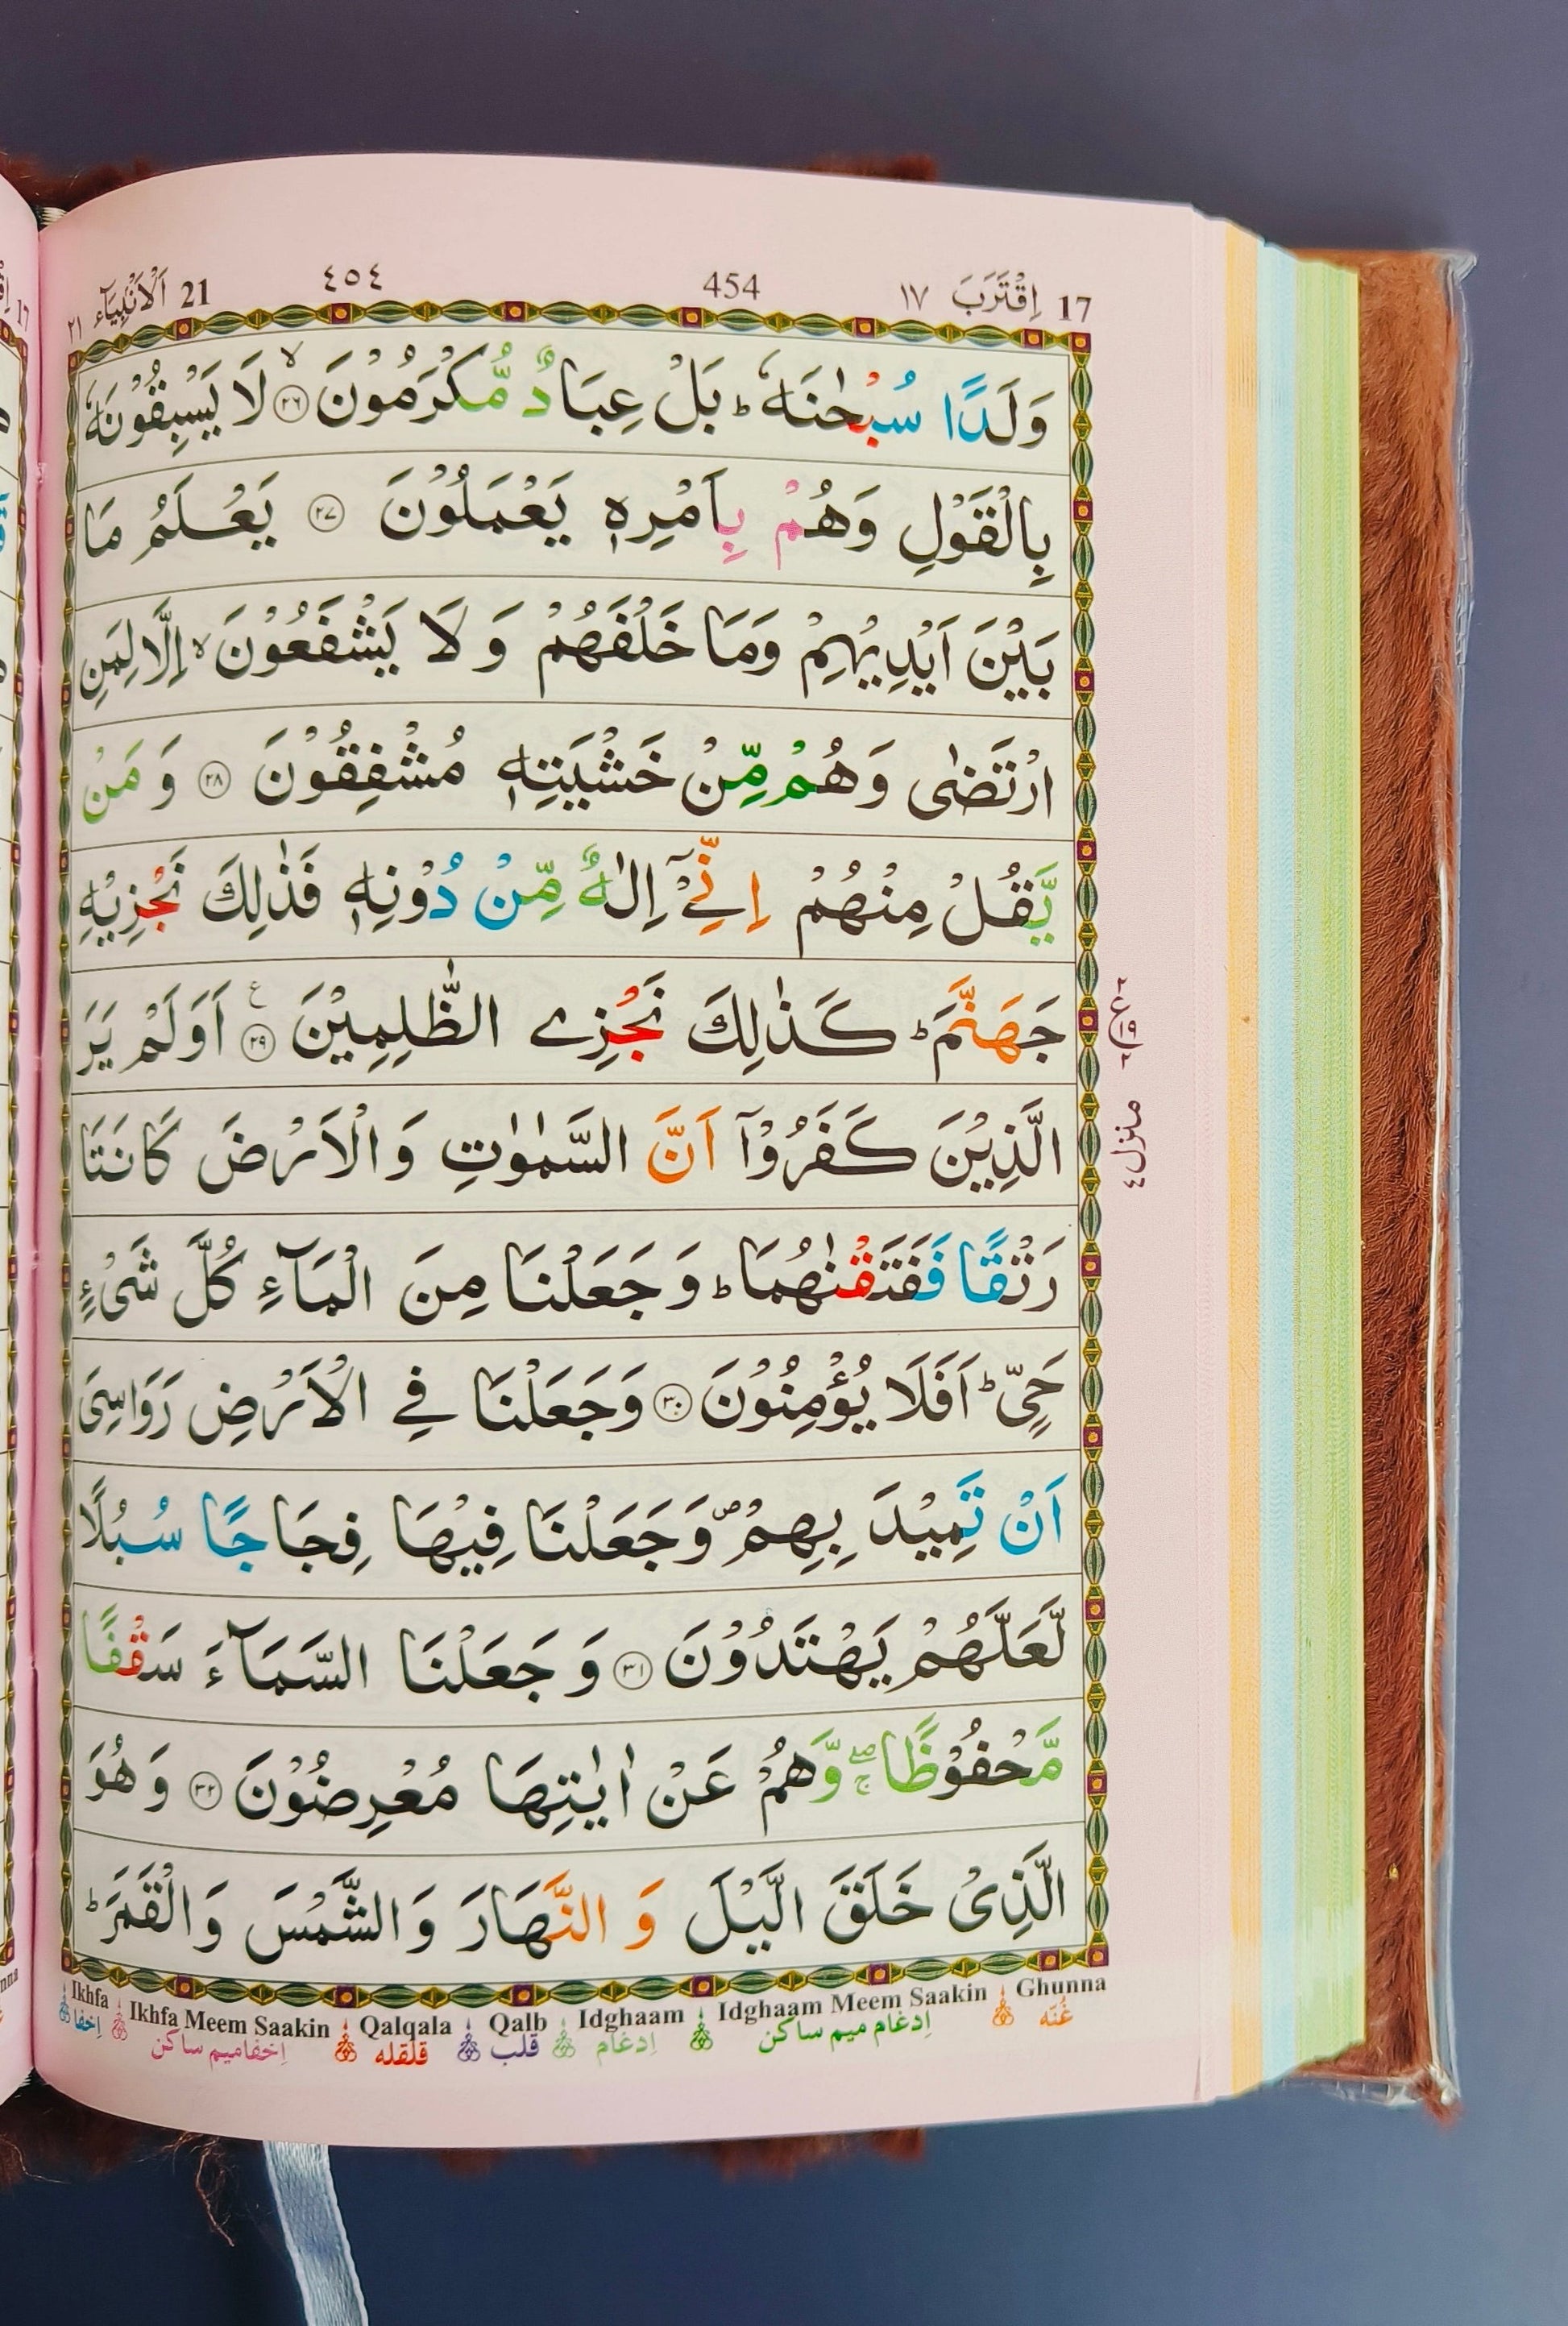 17 اِقْتَرَبَ ١٧ 454 ٤٥٤ 21 اَلْاَنْۢبِيَآء ٢١
وَلَدًا سُبْحٰنَهٗ ؕ بَلْ عِبَادٌ مُّكْرَمُوْنَ ۙ﴿٢٦﴾ لَا يَسْبِقُوْنَهٗ
بِالْقَوْلِ وَهُمْ بِاَمْرِهٖ يَعْمَلُوْنَ ﴿٢٧﴾ يَعْلَمُ مَا
بَيْنَ اَيْدِيْهِمْ وَمَا خَلْفَهُمْ وَ لَا يَشْفَعُوْنَ ۙ اِلَّا لِمَنِ
ارْتَضٰى وَهُمْ مِّنْ خَشْيَتِهٖ مُشْفِقُوْنَ ﴿٢٨﴾ وَ مَنْ
يَّقُلْ مِنْهُمْ اِنِّيْۤ اِلٰهٌ مِّنْ دُوْنِهٖ فَذٰلِكَ نَجْزِيْهِ
جَهَنَّمَ ؕ كَذٰلِكَ نَجْزِي الظّٰلِمِيْنَ ﴿٢٩﴾ ع اَوَلَمْ يَرَ
الَّذِيْنَ كَفَرُوْۤا اَنَّ السَّمٰوٰتِ وَ الْاَرْضَ كَانَتَا
رَتْقًا فَفَتَقْنٰهُمَا ؕ وَ جَعَلْنَا مِنَ الْمَآءِ كُلَّ شَيْءٍ
حَيٍّ ؕ اَفَلَا يُؤْمِنُوْنَ ﴿٣٠﴾ وَجَعَلْنَا فِي الْاَرْضِ رَوَاسِيَ
اَنْ تَمِيْدَ بِهِمْ ۪ وَجَعَلْنَا فِيْهَا فِجَاجًا سُبُلًا
لَّعَلَّهُمْ يَهْتَدُوْنَ ﴿٣١﴾ وَ جَعَلْنَا السَّمَآءَ سَقْفًا
مَّحْفُوْظًا ۖۚ وَّهُمْ عَنْ اٰيٰتِهَا مُعْرِضُوْنَ ﴿٣٢﴾ وَ هُوَ
الَّذِيْ خَلَقَ الَّيْلَ وَ النَّهَارَ وَ الشَّمْسَ وَ الْقَمَرَ ؕ
ع ٢ ١٩ ٢
منزل ٤
Ikhfa Ikhfa Meem Saakin Qalqala Qalb Idghaam Idghaam Meem Saakin Ghunna
اِخفا اِخفا ميم ساكن قلقله قلب اِدغام اِدغام ميم ساكن غُنّه